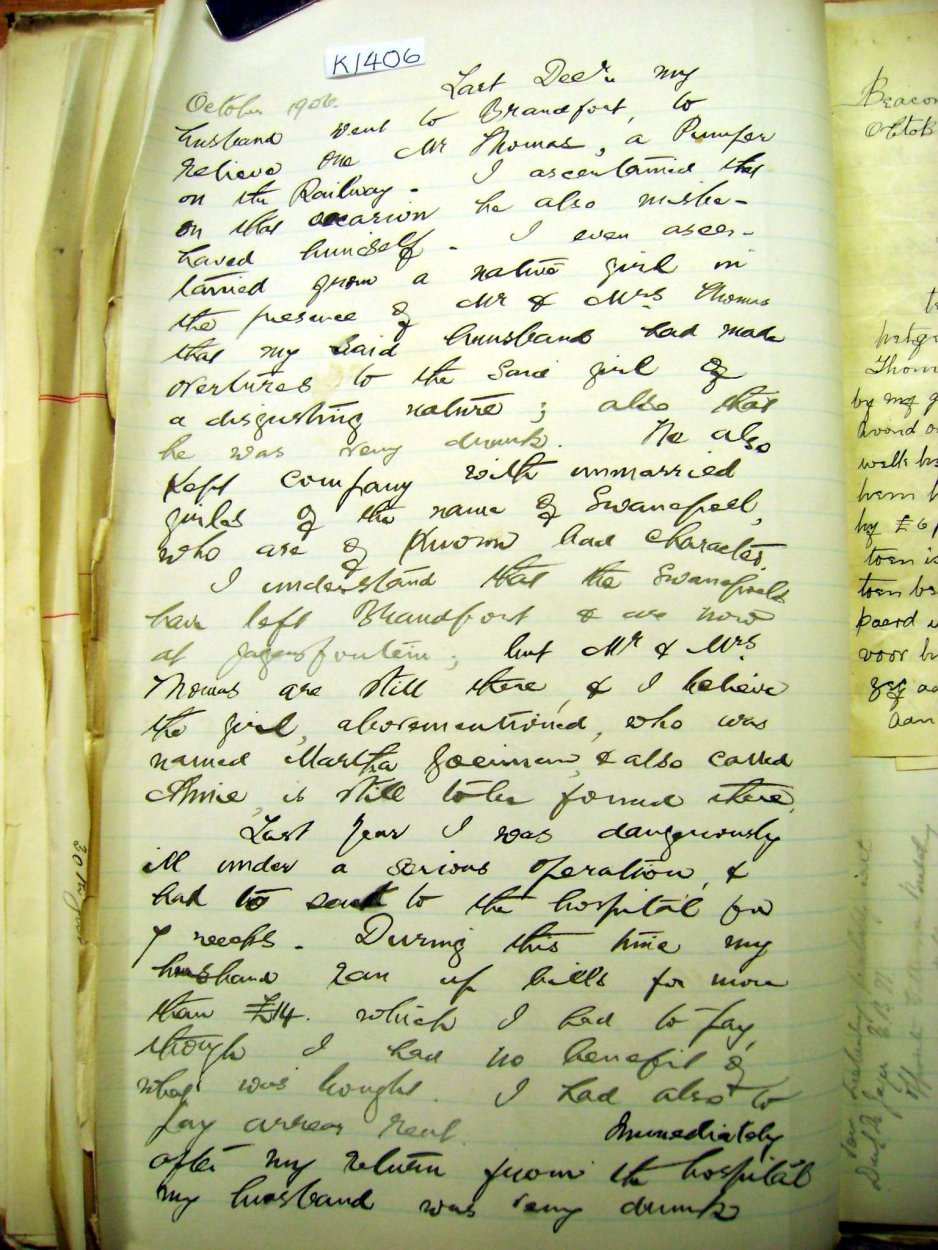 K1406
Last Decr my
October 1906.
husband went to Brandfort, to
relieve one Mr Thomas, a Pumper
on the Railway. I ascertained that
on that occasion he also misbe-
haved himself. I even ascer-
tained from a native girl in
the presence of Mr & Mrs Thomas
that my said husband had made
overtures to the said girl of
a disgusting nature; also that
he was very drunk. He also
kept company with unmarried
girls of the name of Swanepoel,
who are of known bad character.
I understand that the Swanepoels
have left Brandfort & are now
at Jagersfontein; but Mr & Mrs
Thomas are still there, & I believe
the girl, abovementioned, who was
named Martha & also called
Annie, is still to be found there.
Last year I was dangerously
ill under a serious operation, &
had to to the hospital for
7 weeks. During this time my
husband ran up bills for more
than £14. which I had to pay,
though I had no benefit of
what was bought. I had also to
pay arrear rent. Immediately
after my return from the hospital
my husband was very drunk
Beacon
Octob
Thom
by £6
paerd
voor
aan